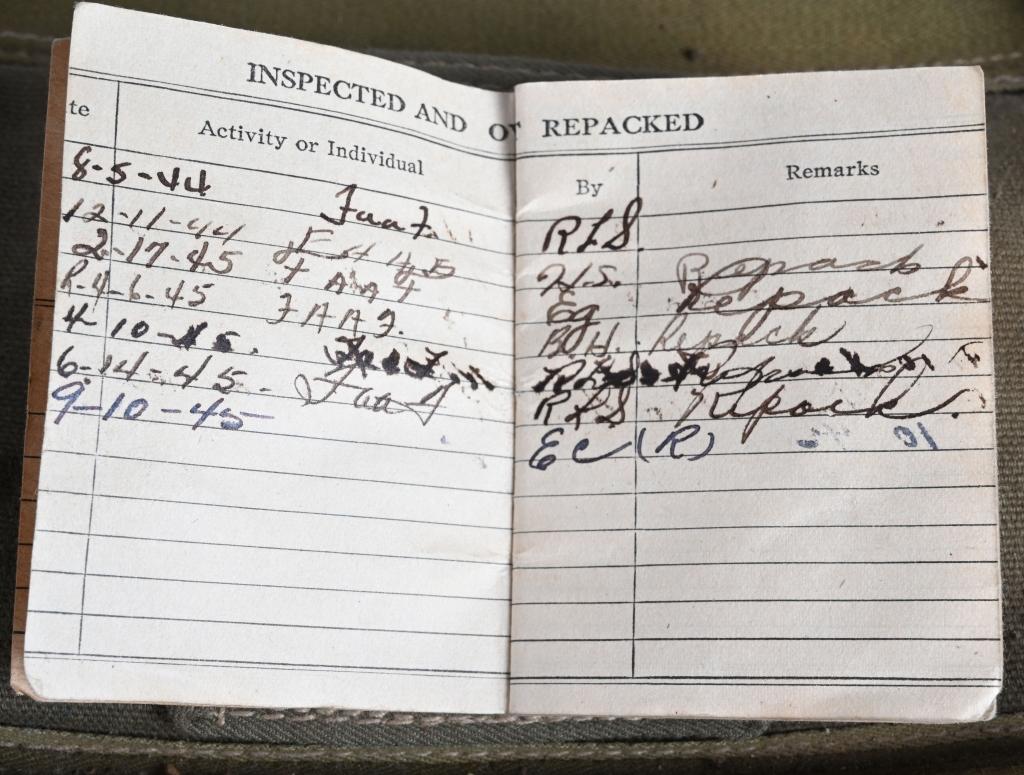 INSPECTED AND OR REPACKED
te Activity or Individual By Remarks
8-5-44 Faaf. RLS.
12-11-44 H.S. Repack
2-17-45 FAAF Eg Repack
R-4-6-45 FAAF. B.H. Repack
4 10-45.
6-14-45. Faaf RLS Repack.
9-10-45 EC (R)